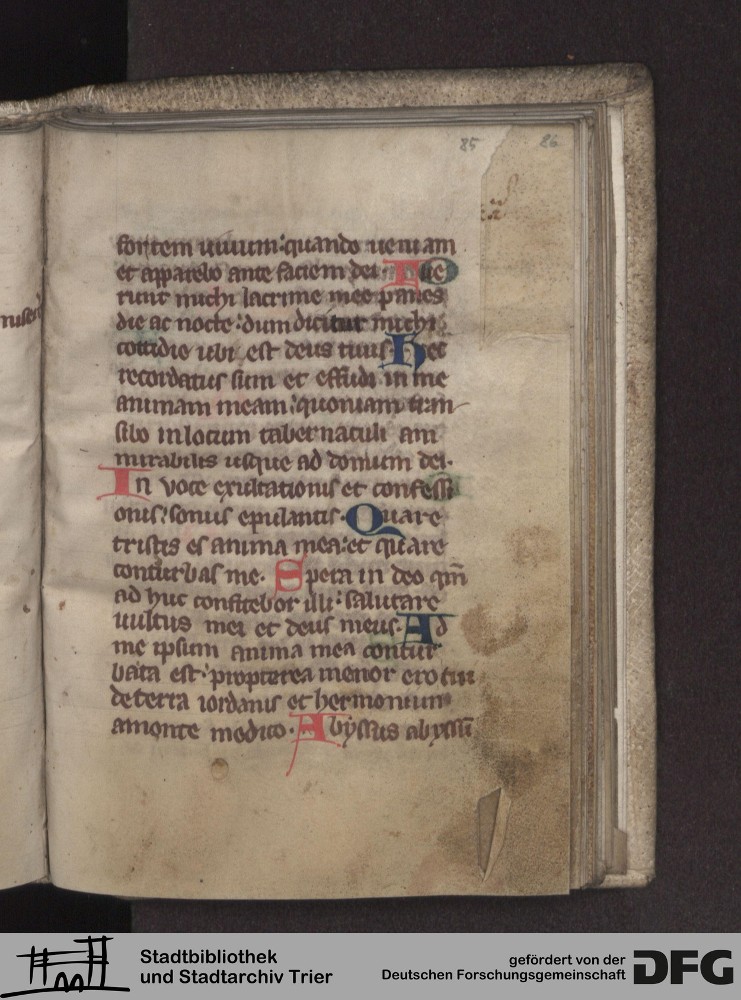 85 86
fontem uiuum:quando ueniam
et apparebo ante faciem dei Fue
runt michi lacrime mee panes
die ac nocte:dum dicitur michi
cottidie ubi est deus tuus. Hec
recordatus sum et effudi in me
animam meam:quoniam tran
sibo in locum tabernaculi am
mirabilis usque ad domum dei.
In voce exultationis et confessi
onis:sonus epulantis. Quare
tristis es anima mea:et quare
conturbas me. Spera in deo qm̄
ad huc confitebor illi:salutare
uultus mei et deus meus. Ad
me ipsum anima mea contur
bata est:propterea memor ero tui
de terra iordanis et hermonium
amonte modico. Abyssus abyssū
Stadtbibliothek
und Stadtarchiv Trier
gefördert von der
Deutschen Forschungsgemeinschaft DFG